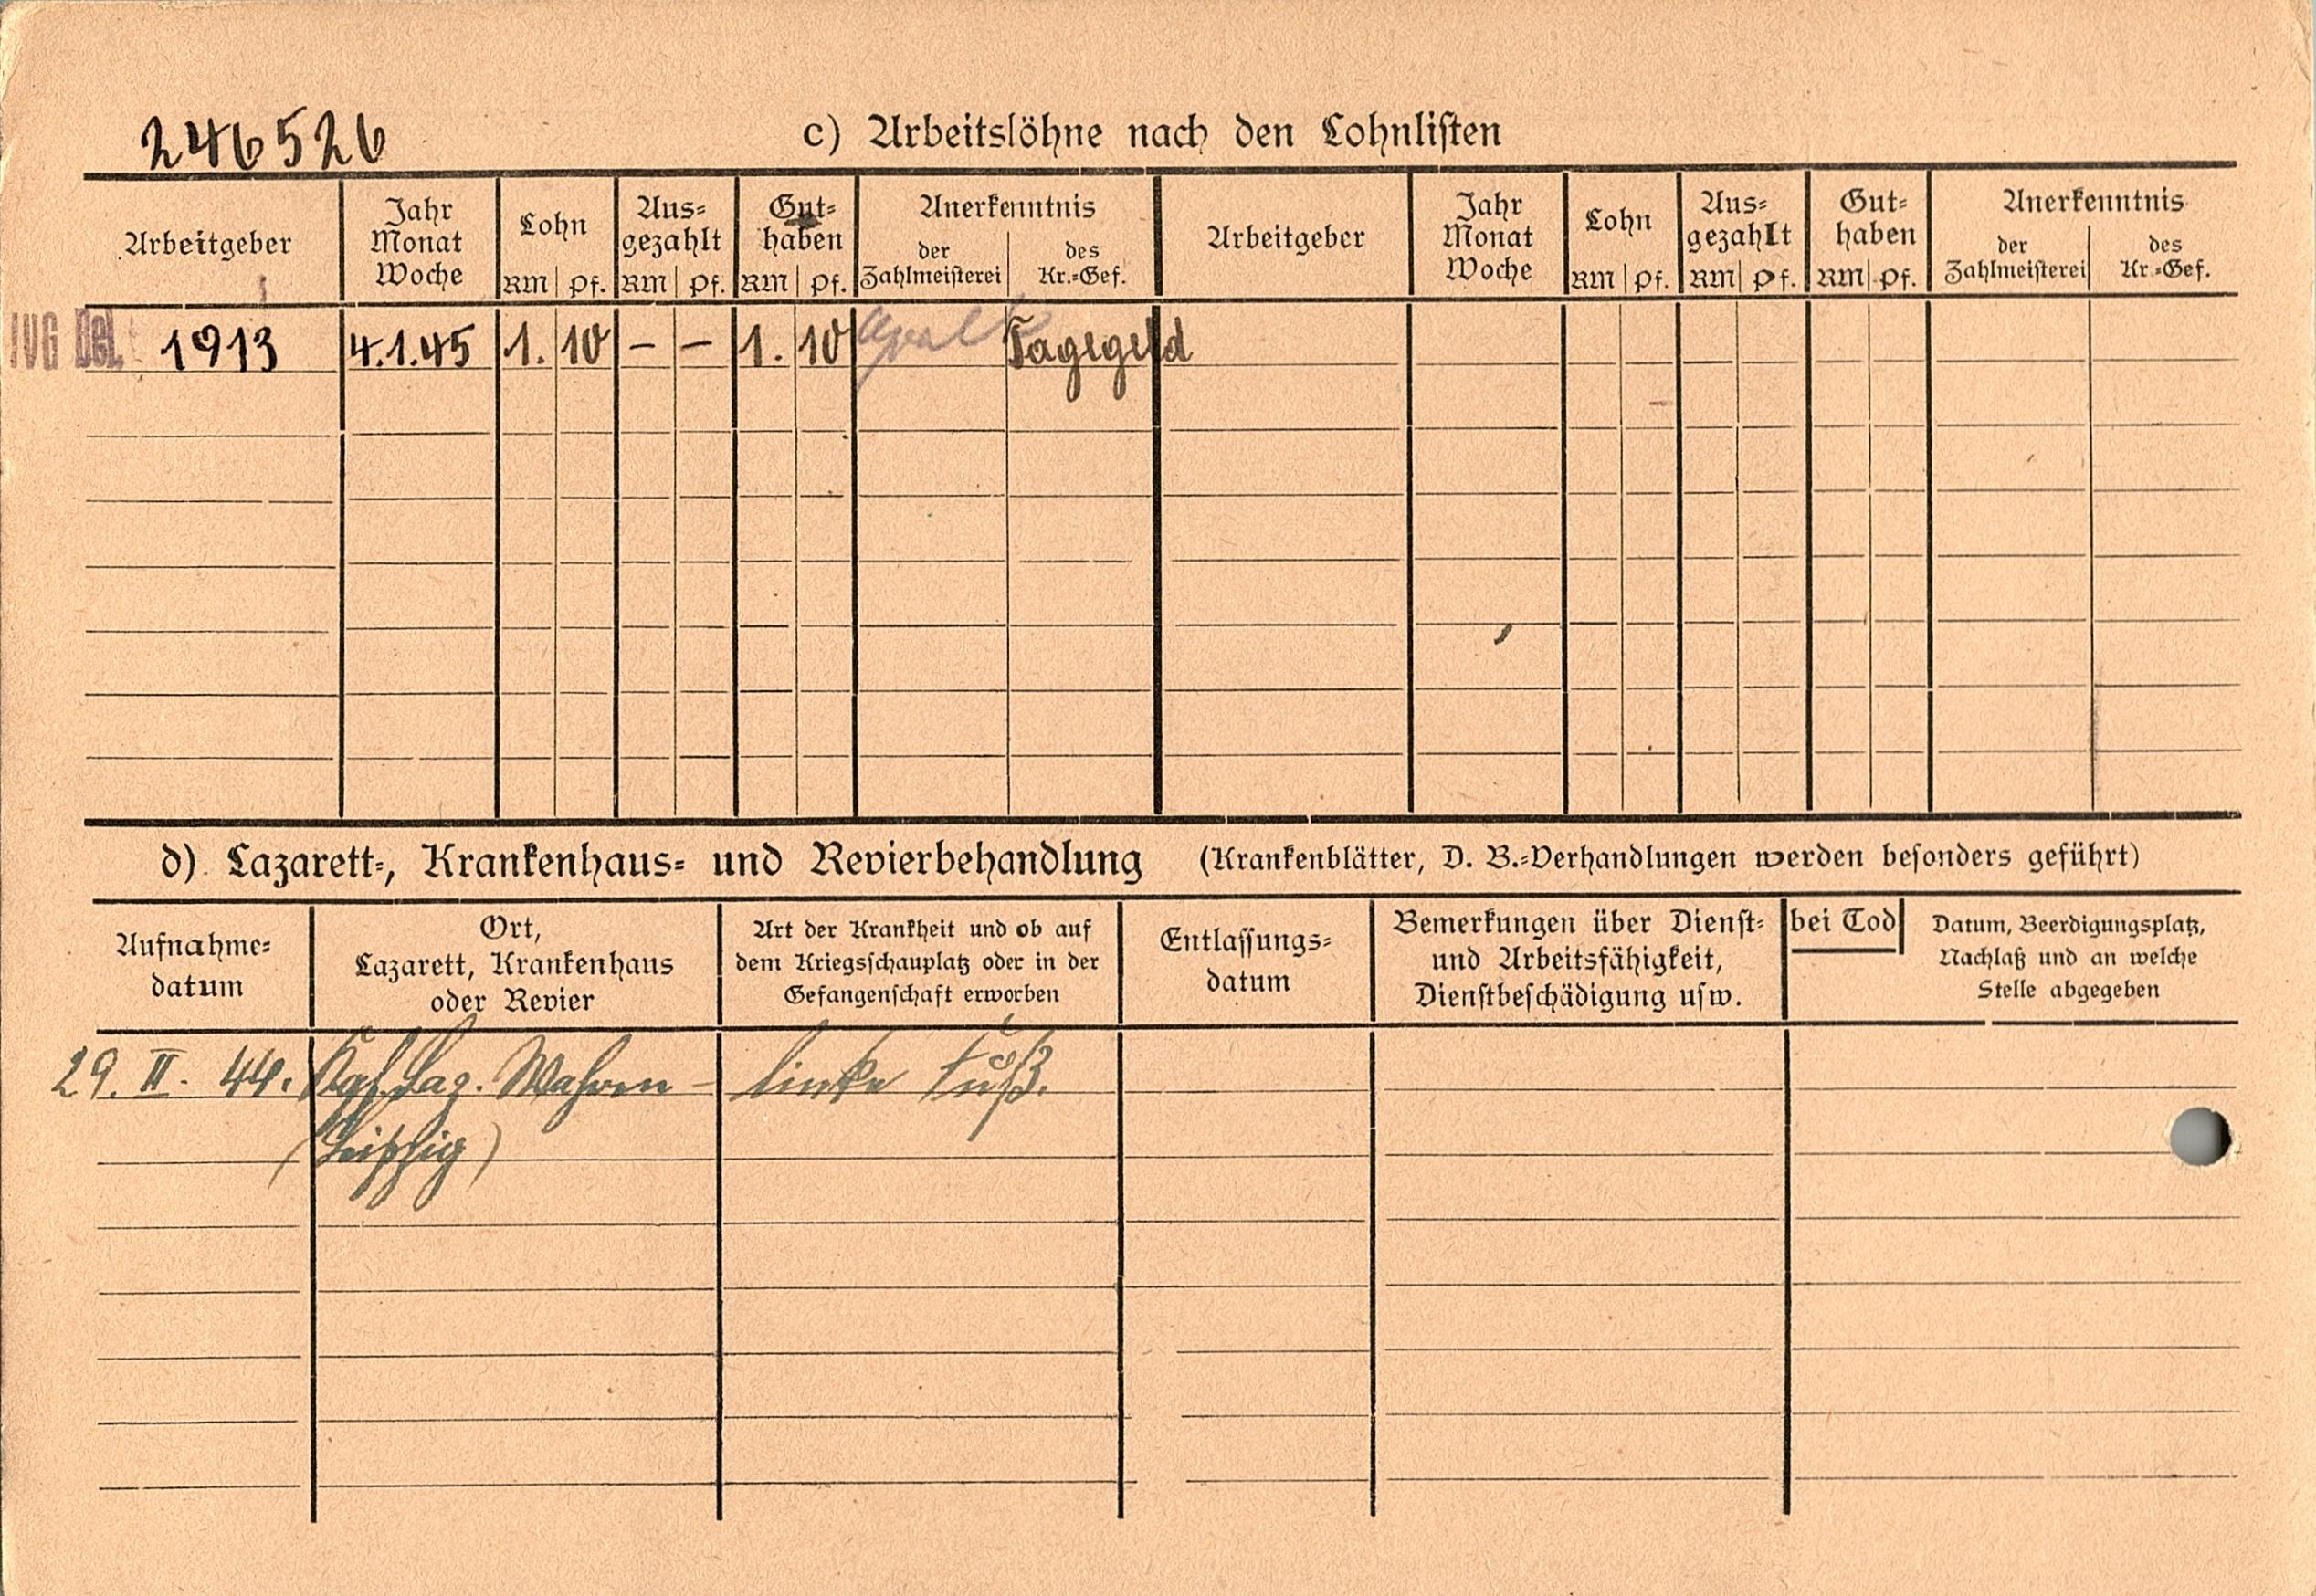 246526
c) Arbeitslöhne nach den Lohnlisten
Arbeitgeber
Jahr
Monat
Woche
Lohn
RM Pf.
Aus-
gezahlt
RM Pf.
Gut-
haben
RM Pf.
Anerkenntnis
der
Zahlmeisterei
des
Kr.-Gef.
Arbeitgeber
Jahr
Monat
Woche
Lohn
RM Pf.
Aus-
gezahlt
RM Pf.
Gut-
haben
RM Pf.
Anerkenntnis
der
Zahlmeisterei
des
Kr.-Gef.
1913 4.1.45 1. 10 – – 1. 10 Tagegeld
d) Lazarett-, Krankenhaus- und Revierbehandlung (Krankenblätter, D. B.-Verhandlungen werden besonders geführt)
Aufnahme-
datum
Ort,
Lazarett, Krankenhaus
oder Revier
Art der Krankheit und ob auf
dem Kriegsschauplatz oder in der
Gefangenschaft erworben
Entlassungs-
datum
Bemerkungen über Dienst-
und Arbeitsfähigkeit,
Dienstbeschädigung usw.
bei Tod
Datum, Beerdigungsplatz,
Nachlaß und an welche
Stelle abgegeben
29. II. 44. Kgf. Laz. Wahren – linke Fuß.
(Leipzig)